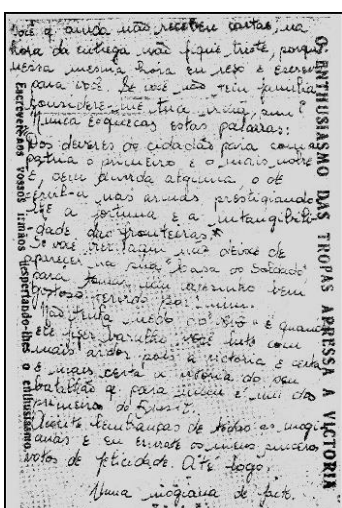 você q ainda não recebeu cartas, na
hora da entrega não fique triste, porque
nessa mesma hora eu rezo e escrevo
para você. Se você não tem familia
considere-me tua irmã, sim?
Nunca esqueças estas palavras:
"Dos deveres do cidadão para com sua
patria o primeiro e o mais nobre
é, sem duvida alguma, o de
servil-a nas armas prestigiando-
lhe a fortuna e a intangibili-
dade das fronteiras."
Se você vier aqui não deixe de
aparecer na sua "Casa do Soldado"
para tomar um cafezinho bem
gostoso servido por mim.
Não tenha medo do "" e quando
ele fizer barulho você lute com
mais ardor pois a victoria é certa
e mais certa a vitória do seu
batalhão q para mim é um dos
primeiros do Brasil.
Aceite lembranças de todas as mogi-
anas e eu envio-te os meus sinceros
votos de felicidade. Até logo,
Uma mogiana de fato.
O ENTHUSIASMO DAS TROPAS APRESSA A VICTORIA
Escrevei aos vossos irmãos despertando-lhes o enthusiasmo.